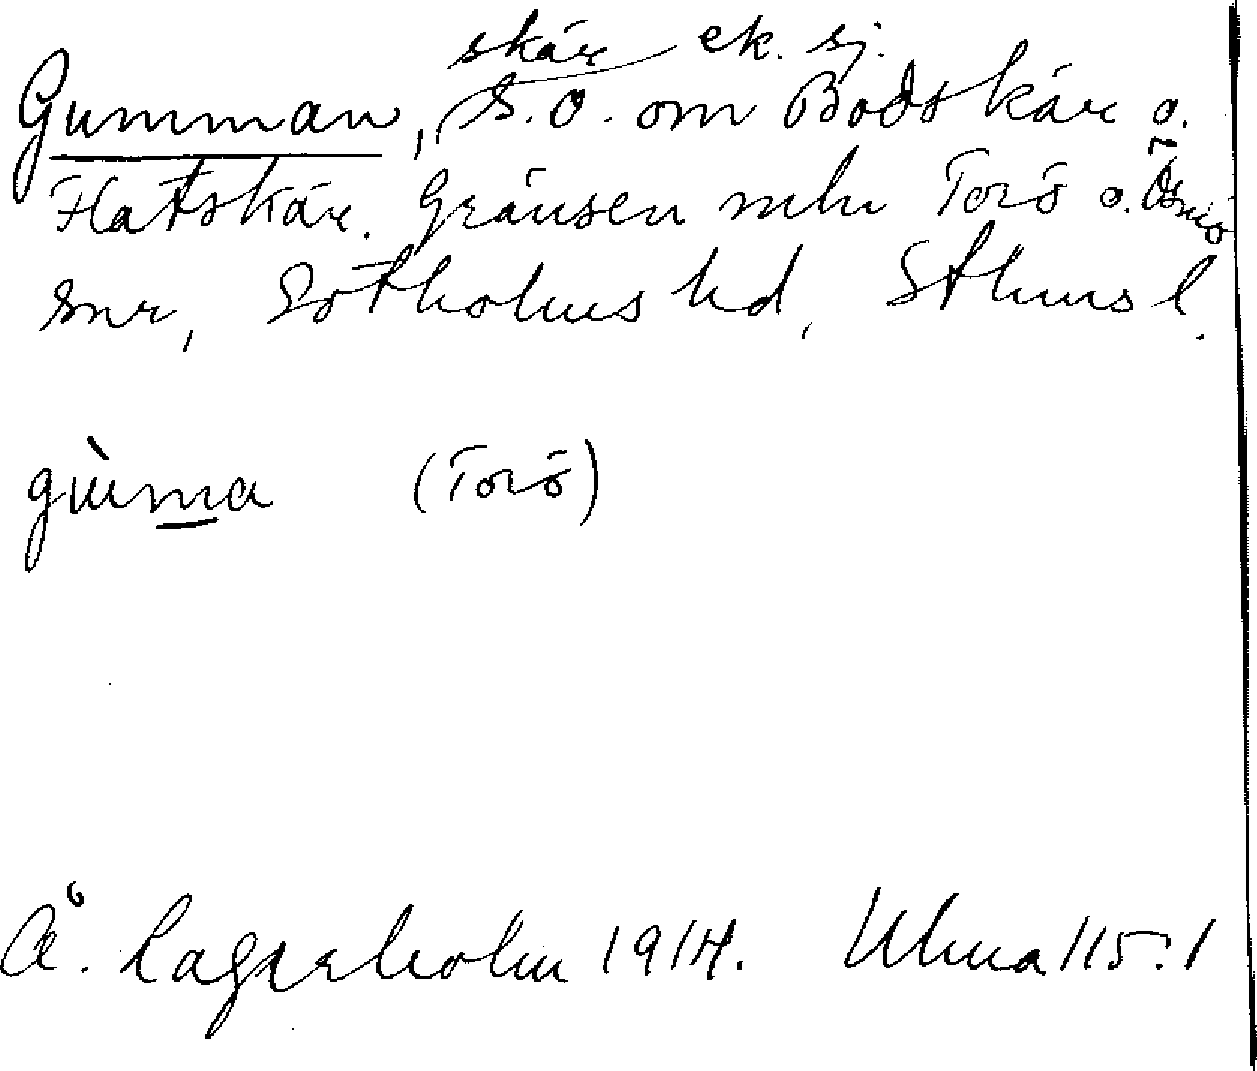 skär ek. sj.
Gumman, S.O. om Bodskär o.
Flatskär. Gränsen mln Torö o. Ösmo
snr, Sotholms hd, Sthms l.
gùma (Torö)
Å. Lagreholm 1914. Ulma 115:1